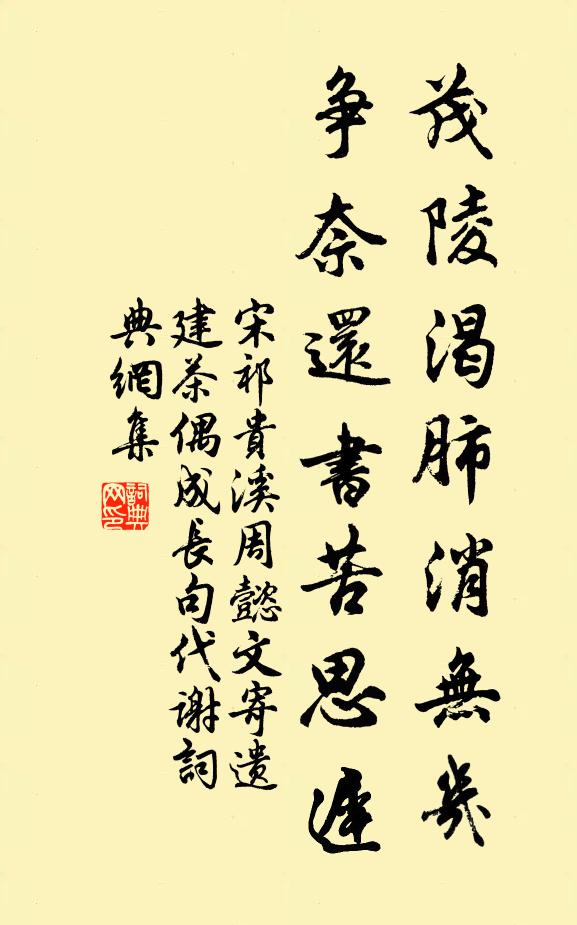 茂陵渴肺消無幾
爭奈還書苦思遲
宋祁貴溪周懿文寄遺
建茶偶成長句代謝詞
典網集
詞典
网印